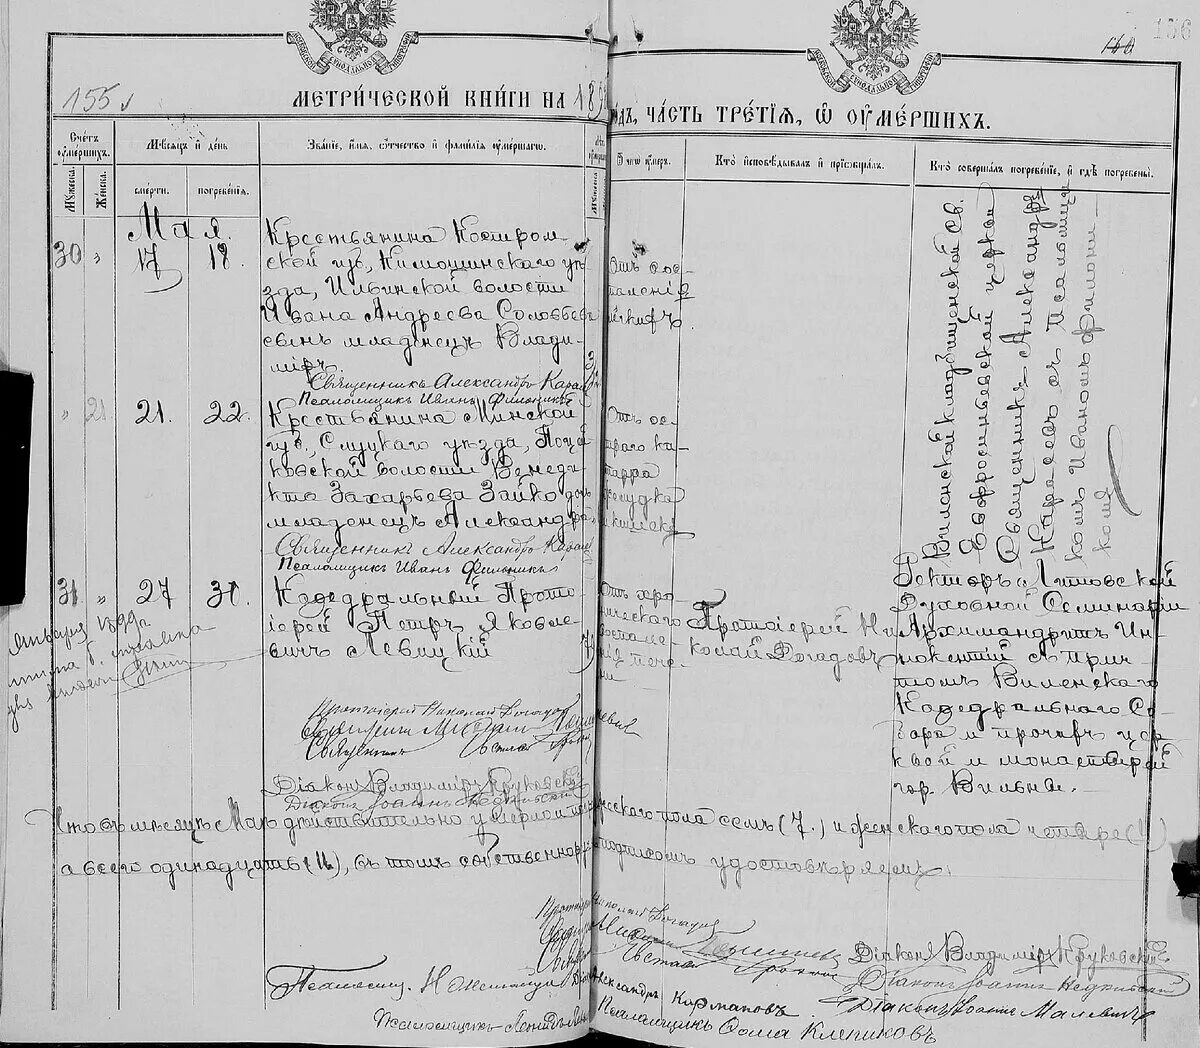 155
160
156
МЕТРИЧЕСКОЙ КНИГИ НА 189
ГОДЪ, ЧАСТЬ ТРЕТІЯ, Ѿ ОУМЕРШИХЪ.
Счетъ оумершихъ.
Мѣсяцъ и день
Званіе, имя, отчество и фамилія оумершаго.
Ѿ чего оумеръ.
Кто исповѣдывалъ и пріобщалъ.
Кто совершалъ погребеніе, и гдѣ погребены.
Мужеска.
Женска.
смерти.
погребенія.
Мая.
30 " 17 18.
Крестьянина Костром-
ской губ., Кинешинскаго уѣ-
зда, Ильинской волости
Ивана Андреева Соловьева
сынъ младенецъ Влади-
міръ.
Священникъ Александръ Карас
Псаломщикъ Иванъ Филоник
Отъ вос-
паленія
легкихъ.
Виленской кладбищенской Св.
Евфросиньевской церкви
Священникъ Александръ
Карасевъ съ Псаломщи-
комъ Иваномъ Филони-
комъ
" 21 21. 22.
Крестьянина Минской
губ., Слуцкаго уѣзда, Поцей-
ковской волости Венеди-
кта Захарьева Зайко дочь
младенецъ Александра.
Священникъ Александръ Карас
Псаломщикъ Иванъ Филоникъ
Отъ ос-
траго ка-
тарра
желудка
и кишекъ
31 " 27 30.
Кафедральный Прото-
іерей Петръ Яковле-
вичъ Левицкій
Отъ хро-
ническаго
воспале-
нія пече-
ни
Протоіерей Ни-
колай Догадовъ
Ректоръ Литовской
Духовной Семинаріи
Архимандритъ Ин-
нокентій съ прич-
томъ Виленскаго
Кафедральнаго Со-
бора и прочихъ цер-
квей и монастырей
гор. Вильны.
Января 1899 г.
Протоіерей Николай Догадовъ
Священникъ
Діаконъ Владиміръ Круковскій
Діаконъ Іоаннъ Недѣльскій
Что въ мѣсяцѣ Маѣ дѣйствительно умерло мужескаго пола семь (7.) и женскаго пола четыре (4)
а всего одинадцать (11), въ томъ собственноручною подписомъ удостовѣряемъ:
Протоіерей Николай Догадовъ
Діаконъ Владиміръ Круковскій
Діаконъ Іоаннъ Недѣльскій
Діаконъ Александръ Кармановъ.
Діаконъ Іоаннъ Малевичъ
Псаломщикъ Леонидъ
Псаломщикъ Ѳома Клепиковъ